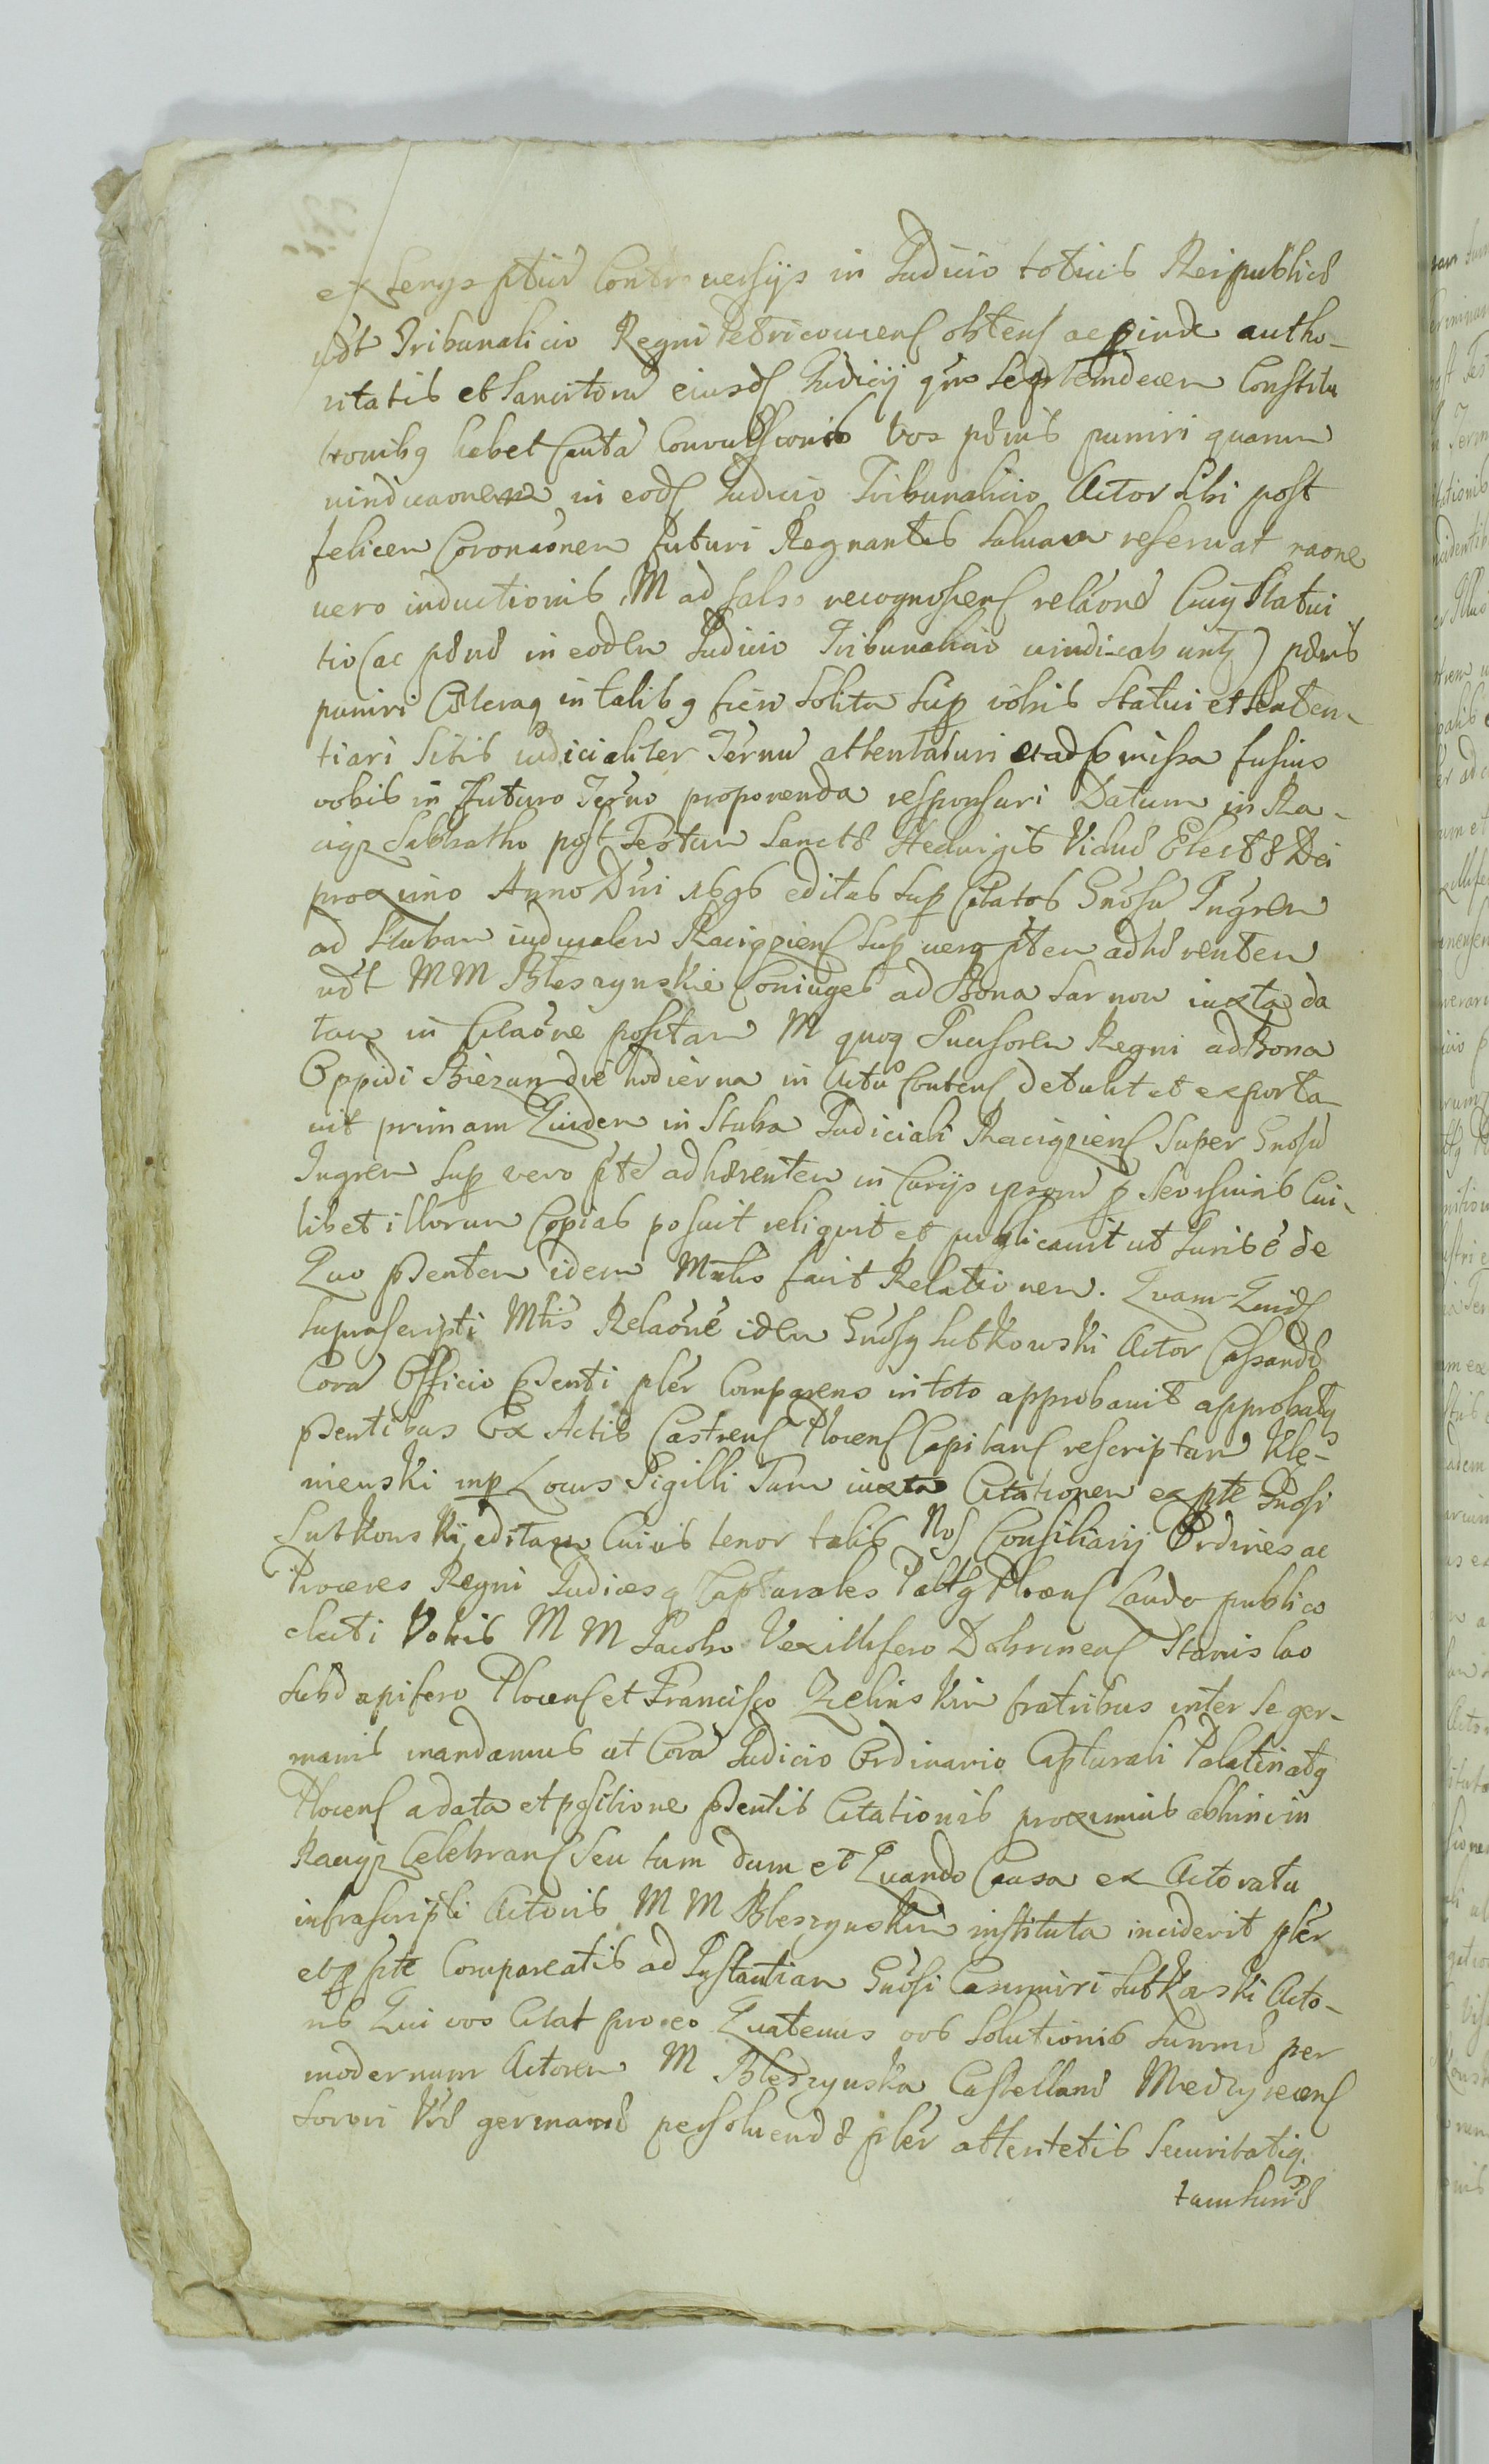 ex Controversijs in Judicio totius Reipublicæ
udt Tribunalicio Regni Petricoviens obtens ac pinde autho-
ritatis et Sancitorũ eiusdẽ Judicij Septemdecem Constitu
tionibq habet Convulsionis Vos pænis puniri quarum
vindicaonem in eodẽ Judicio Tribunalicio Actor sibi post
felicem Coronaonem futuri Regnantis salvam reservat raone
vero inductionis M ad falso recognoscens relaonẽ Cuig Statui
tio (ac pænæ in eodem Judicio Tribunalicio vindicabuntz) pænis
puniri Cæteraq in talibq fieri solita Sup vobis Statui et Senten-
tiari Sitis iudicialiter Ternũ attentaturi et ad pmissa fusius
vobis in Futuro Terno proponenda responsuri Datum in Ra-
ciąz Sabbatho post Festum Sanctæ Hedvigis Viduæ Electæ Dei
proximo Anno Dni 1696 editas Sup Citatos Gnosũ Ingrem
ad Stubam iudicialem Raciązens Sup vero ptem adhærentem
udt MM Bleszynskie Coniuges ad Bona Sarnow iuxta da
tam in Citaone positam M quoq Incisorem Regni ad Bona
Oppidi Biezun die hodierna in Actu Contens detulit et exporta
vit primam Quidem in Stuba Judiciali Raciąziens Super Gnosũ
Ingrem Sup vero pte adhærentem in Curijs ipsorũ p Seorsivas Cui-
libet illorum Copias posuit reliquit et publicavit ut Juris e de
Quo psentem idem Mnlis facit Relationem. Quam Quidẽ
Suprascripti Mlis Relaone idem Gnosq Sutkowski Actor Cassandæ
Corã Officio psenti pler Comparens in toto approbavit approbatq
psentibus Ex Actis Castrens Plocens Capitans rescriptam Kle-
nienski mp Locus Sigilli Tum iuxta Citationem ex pte Gnosi
Sutkowskij editam Cuius tenor talis Nos Consiliarij Ordines ac
Proceres Regni Judicesq Capturales Palty Plocens Laudo publico
electi Vobis M M Jacobo Vexillifero Dobrinens Stanislao
Subdapifero Plocens et Francisco Zielinskim fratribus inter se ger-
manis mandamus ut Corã Judicio Ordinario Capturali Palatinatq
Plocens a data et positione psentis Citationis proximis abhinc in
Raciąz Celebrans Seu tum dum et Quando Causa ex Actoratu
infrascripti Actoris M M Bleszynskim instituta inciderit pler
et p pte Compareatis ad Instantiam Gnosi Casimiri Sutkowski Acto-
ris Qui vos Citat pro eo Quatenus vos Solutionis Summæ per
modernum Actorem M Bleszynska Castellanæ Medzyrecens
Sorori Vræ germanæ persolvendæ pler attentetis Securitatiq.
tam Sumæ